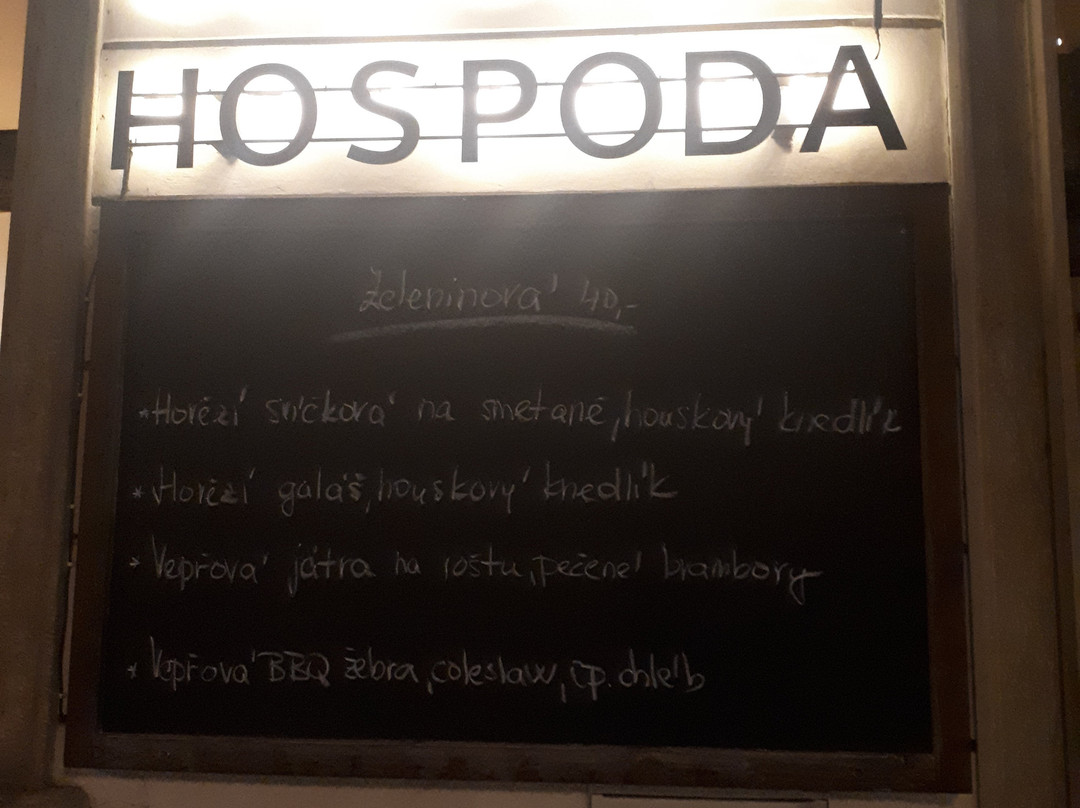 HOSPODA
Zeleninová 40,-
*Hovězí svíčková na smetaně, houskový knedlík
*Hovězí guláš, houskový knedlík
*Vepřová játra na roštu, pečené brambory
*Vepřová BBQ žebra, coleslaw, čp. chléb